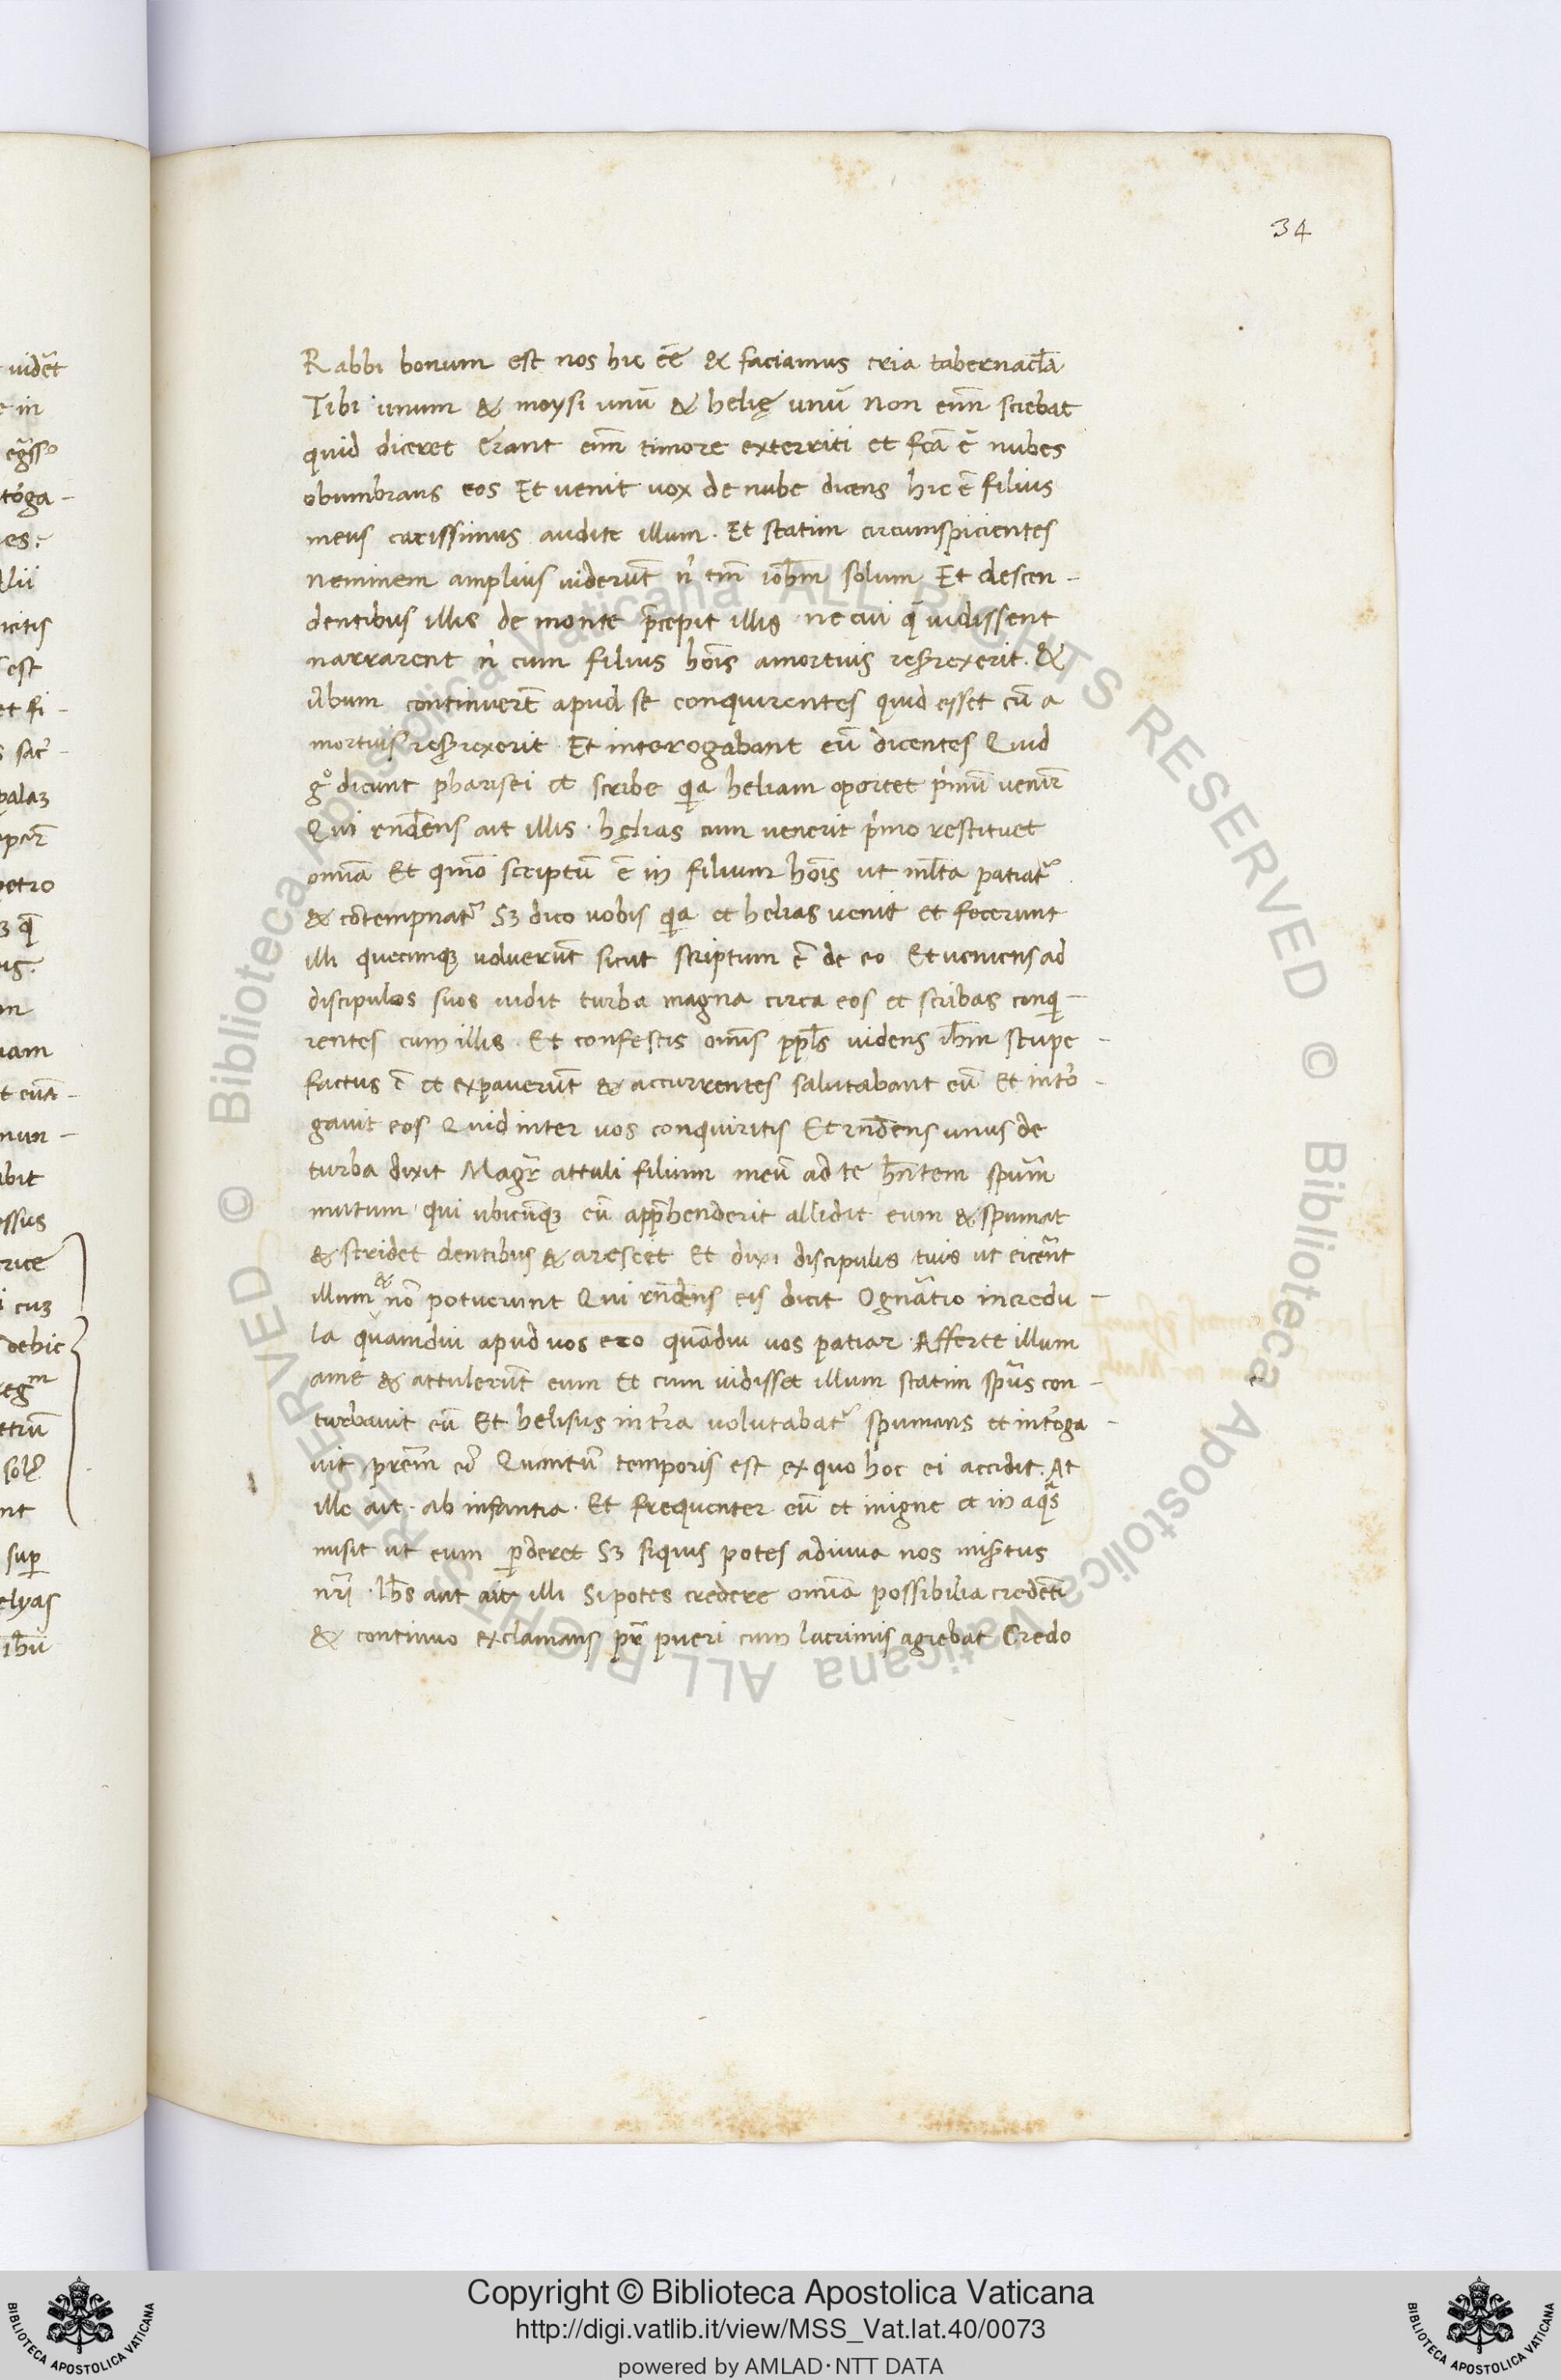 34
Rabbi bonum est nos hic eē & faciamus tria tabernacl̄a
Tibi unum & moysi unū & helię unū non enī sciebat
quid diceret Erant enī timore exterriti et fcā ē nubes
obumbrans eos Et venit vox de nube dicens hic ē filius
meus carissimus audite illum. Et statim circumspicientes
neminem amplius viderūt nͥ tm̄ ihm̄ solum Et descen-
dentibus illis de monte p̄cepit illis ne cui q̄ vidissent
narrarent nͥ cum filius hoīs amortuis resurrexerit. &
v̄bum continuerūt apud se conquirentes quid esset cū a
mortuis resurrexerit Et interogabant eū dicentes Quid
gͦ dicunt pharisei et scribe quia heliam oportet pͥmū venir̄
Qui rn̄dens ait illis. hęlias cum venerit pͥmo restituet
omīa Et quōo scriptū ē in filium hoīs ut ml̄ta patiat᷑
& contempnat᷑ Sꝫ dico vobis quia et helias venit et fecerunt
illi quecumqꝫ voluerūt sicut scriptum ē de eo Et veniens ad
discipulos suos vidit turba magna circa eos et scribas conqͥ-
rentes cum illis. Et confestis om̄is ppl̄s videns ihm̄ stupe-
factus ē et expaverūt & accurrentes salutabant eū Et int̄o-
gavit eos Quid inter vos conquiritis Et rn̄dens unus de
turba dixit Magr̄ attuli filium meū ad te hn̄tem spūm
mutum qui ubicūqꝫ eū app̄henderit allidit eum & spumat
& stridet dentibus & arescit Et dixi discipulis tuis ut eicer̄nt
illum & nō potuerunt Qui rn̄dens eis dicit O gnāatio incredu-
la quamdiu apud vos ero quādiu vos patiar. Afferte illum
ame & attulerūt eum Et cum vidisset illum statim spūs con-
turbavit eū Et helisus in t̄ra volutabat᷑ spumans et int̄oga-
vit pr̄em eͥ Quantū temporis est ex quo hoc ei accidit. At
ille ait. ab infantia. Et frequenter eū et inigne et in aquas
misit ut eum ꝑderet Sꝫ siquis potes adiuva nos mis̄tus
nr̄i. Ihs̄ aut ait illi Si potes credere omīa possibilia credenti
& continuo exclamans pr̄ pueri cum lacrimis agiebat Credo
Copyright © Biblioteca Apostolica Vaticana
http://digi.vatlib.it/view/MSS_Vat.lat.40/0073
powered by AMLAD·NTT DATA
BIBLIOTECA APOSTOLICA VATICANA
BIBLIOTECA APOSTOLICA VATICANA
© Biblioteca Apostolica Vaticana ALL RIGHTS RESERVED
© Biblioteca Apostolica Vaticana ALL RIGHTS RESERVED